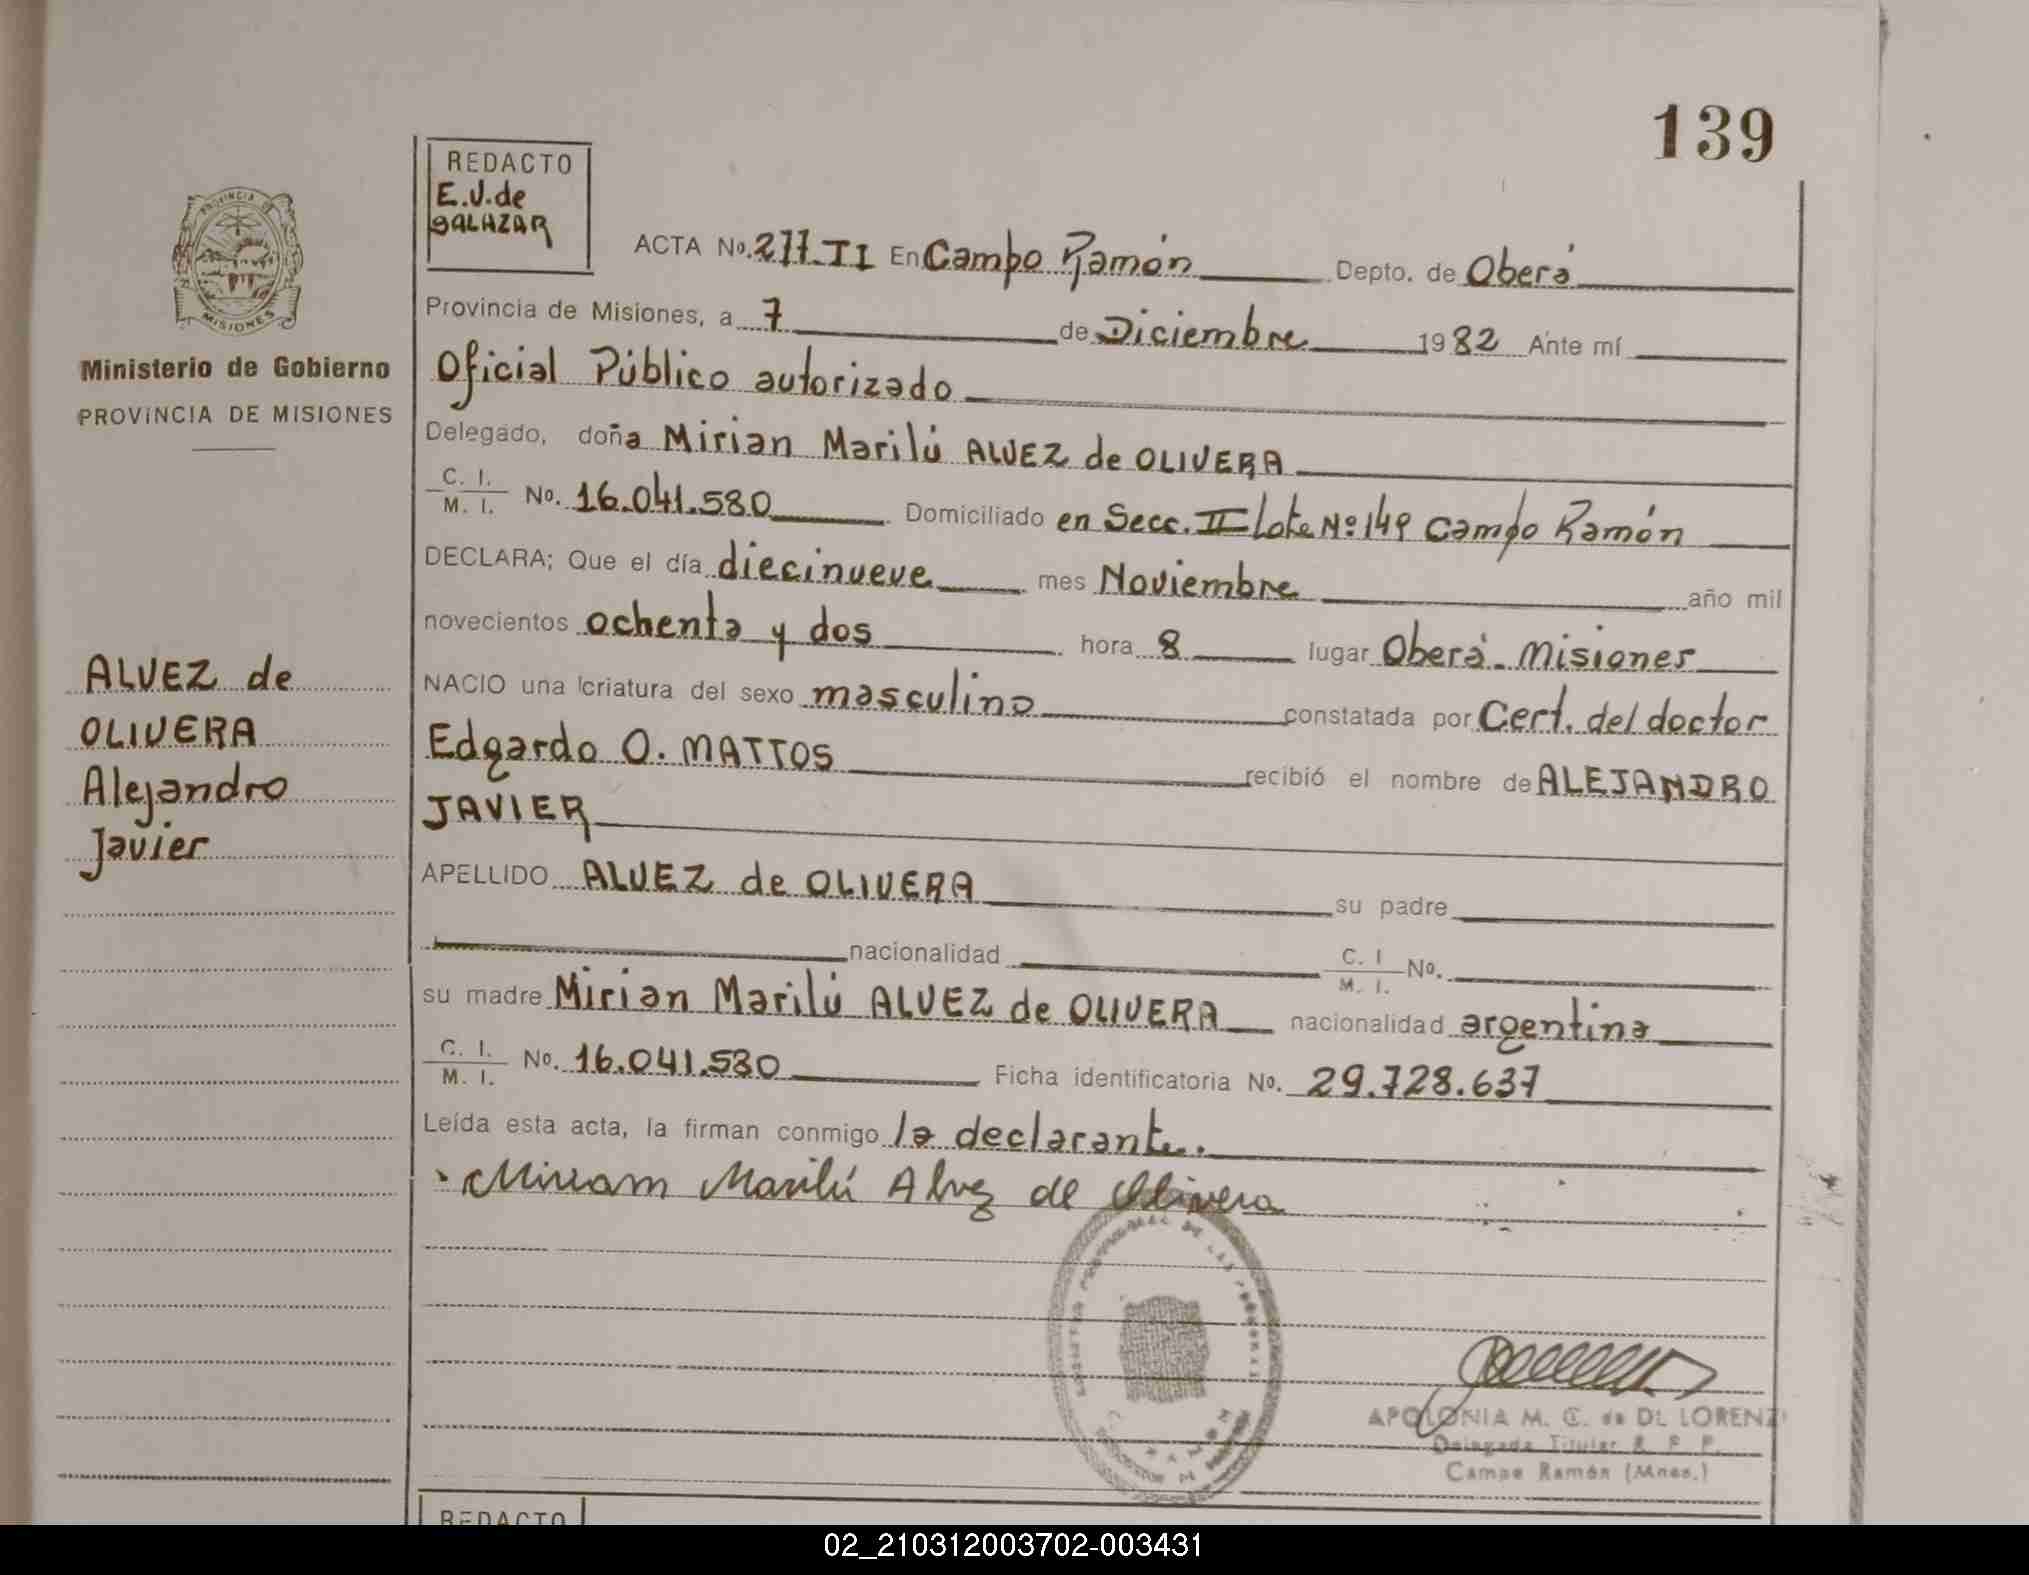 139
REDACTO
E.V. de
SALAZAR
ACTA No. 277-II En Campo Ramón Depto. de Oberá
Provincia de Misiones, a 7 de Diciembre 1982 Ante mí
Oficial Público autorizado
Delegado, doña Mirian Marilú ALVEZ de OLIVERA
C. I. / M. I. No. 16.041.580 Domiciliado en Secc. II Lote Nº 149 Campo Ramón
DECLARA; Que el día diecinueve mes Noviembre año mil
novecientos ochenta y dos hora 8 lugar Oberá - Misiones
NACIO una criatura del sexo masculino constatada por Cert. del doctor
Edgardo O. MATTOS recibió el nombre de ALEJANDRO
JAVIER
APELLIDO ALVEZ de OLIVERA su padre
nacionalidad C. I / M. I. No.
su madre Mirian Marilú ALVEZ de OLIVERA nacionalidad argentina
C. I. / M. I. No. 16.041.580 Ficha identificatoria No. 29.728.637
Leída esta acta, la firman conmigo la declarante.
Miriam Marilú Alvez de Olivera
APOLONIA M. C. de DL LORENZI
Delegada Titular R. P. P.
Campo Ramón (Mnes.)
REDACTO
PROVINCIA DE
MISIONES
Ministerio de Gobierno
PROVINCIA DE MISIONES
ALVEZ de
OLIVERA
Alejandro
Javier
02_210312003702-003431